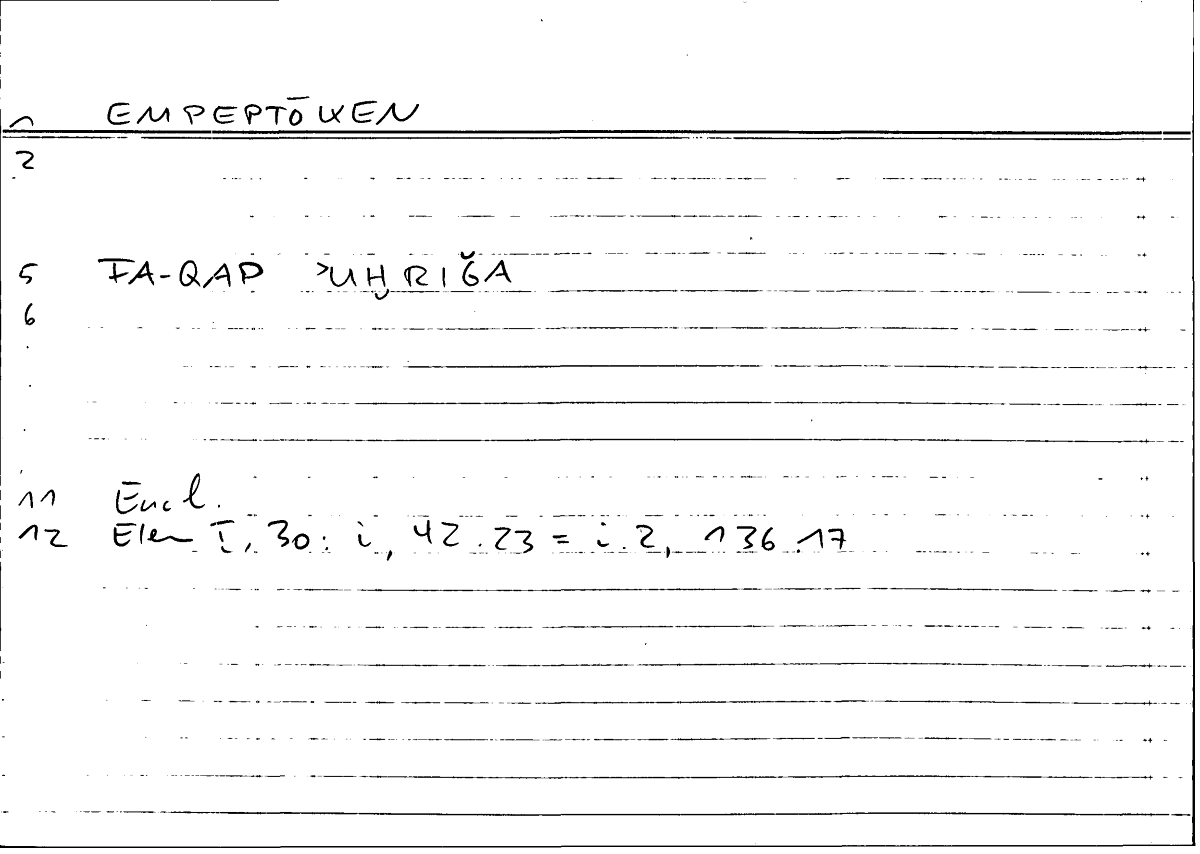 1 EMPEPTŌKEN
2
5 FA-QAD ʾUḪRIǦA
6
11 Eucl.
12 Elem I, 30: i, 42.23 = i.2, 136.17